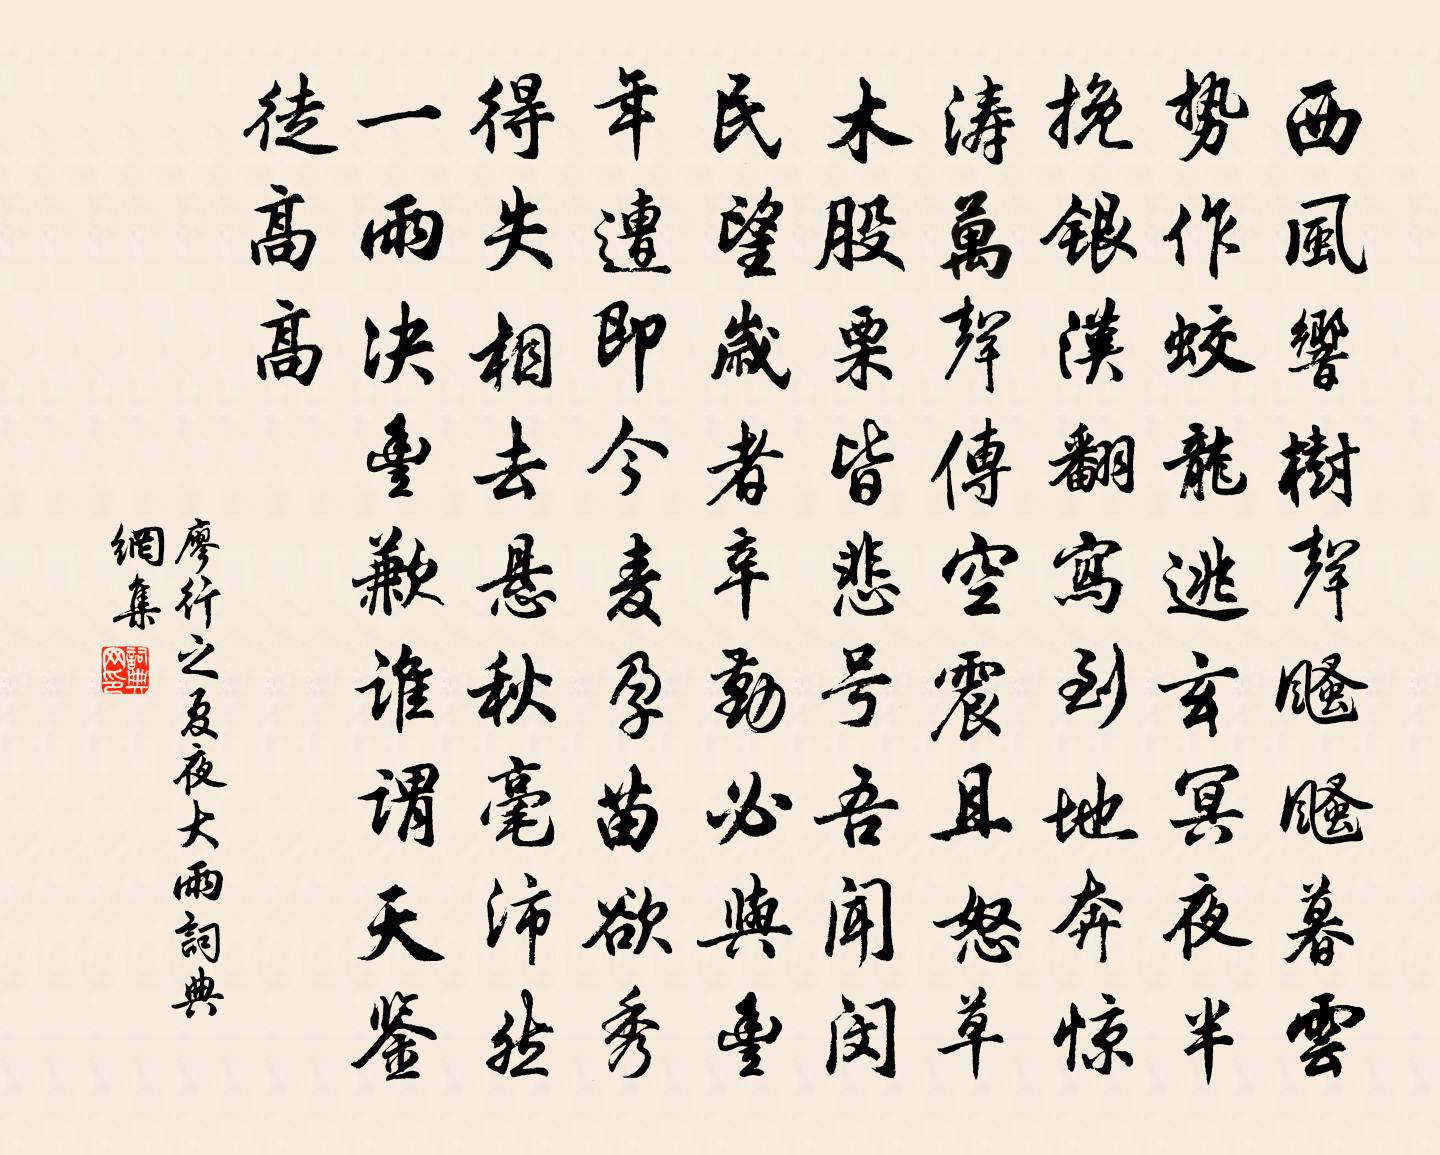 西風響樹聲颼颼暮雲
勢作蛟龍逃玄冥夜半
挽銀漢翻寫到地奔惊
濤萬聲傳空震且怒草
木股栗皆悲号吾聞闵
民望歲者辛勤必與豊
年遭即今麦孕苗欲秀
得失相去悬秋毫沛然
一雨决豊歉谁谓天鉴
徒高高
廖行之夏夜大雨詞典
網集
詞典网印